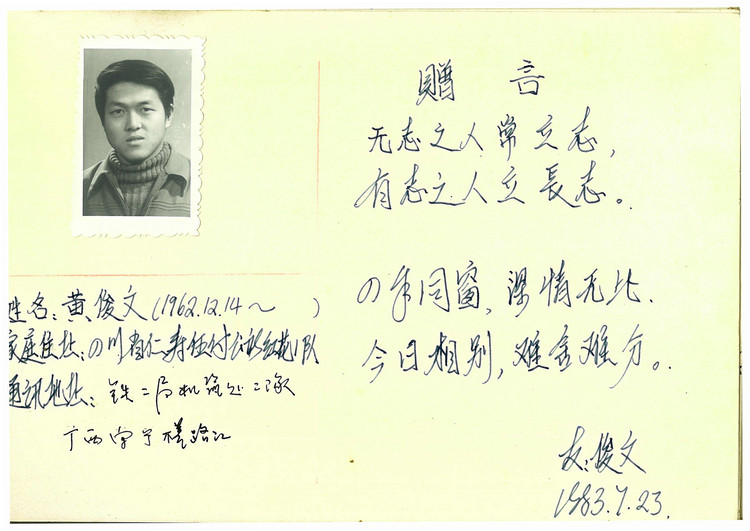 姓名:黄俊文(1962.12.14~ )
家庭住址:四川省仁寿
通讯地址:铁二局机筑处二队
广西南宁
贈言
无志之人常立志,
有志之人立長志。
四年同窗,深情无比.
今日相别,难舍难分。
友:俊文
1983.7.23.